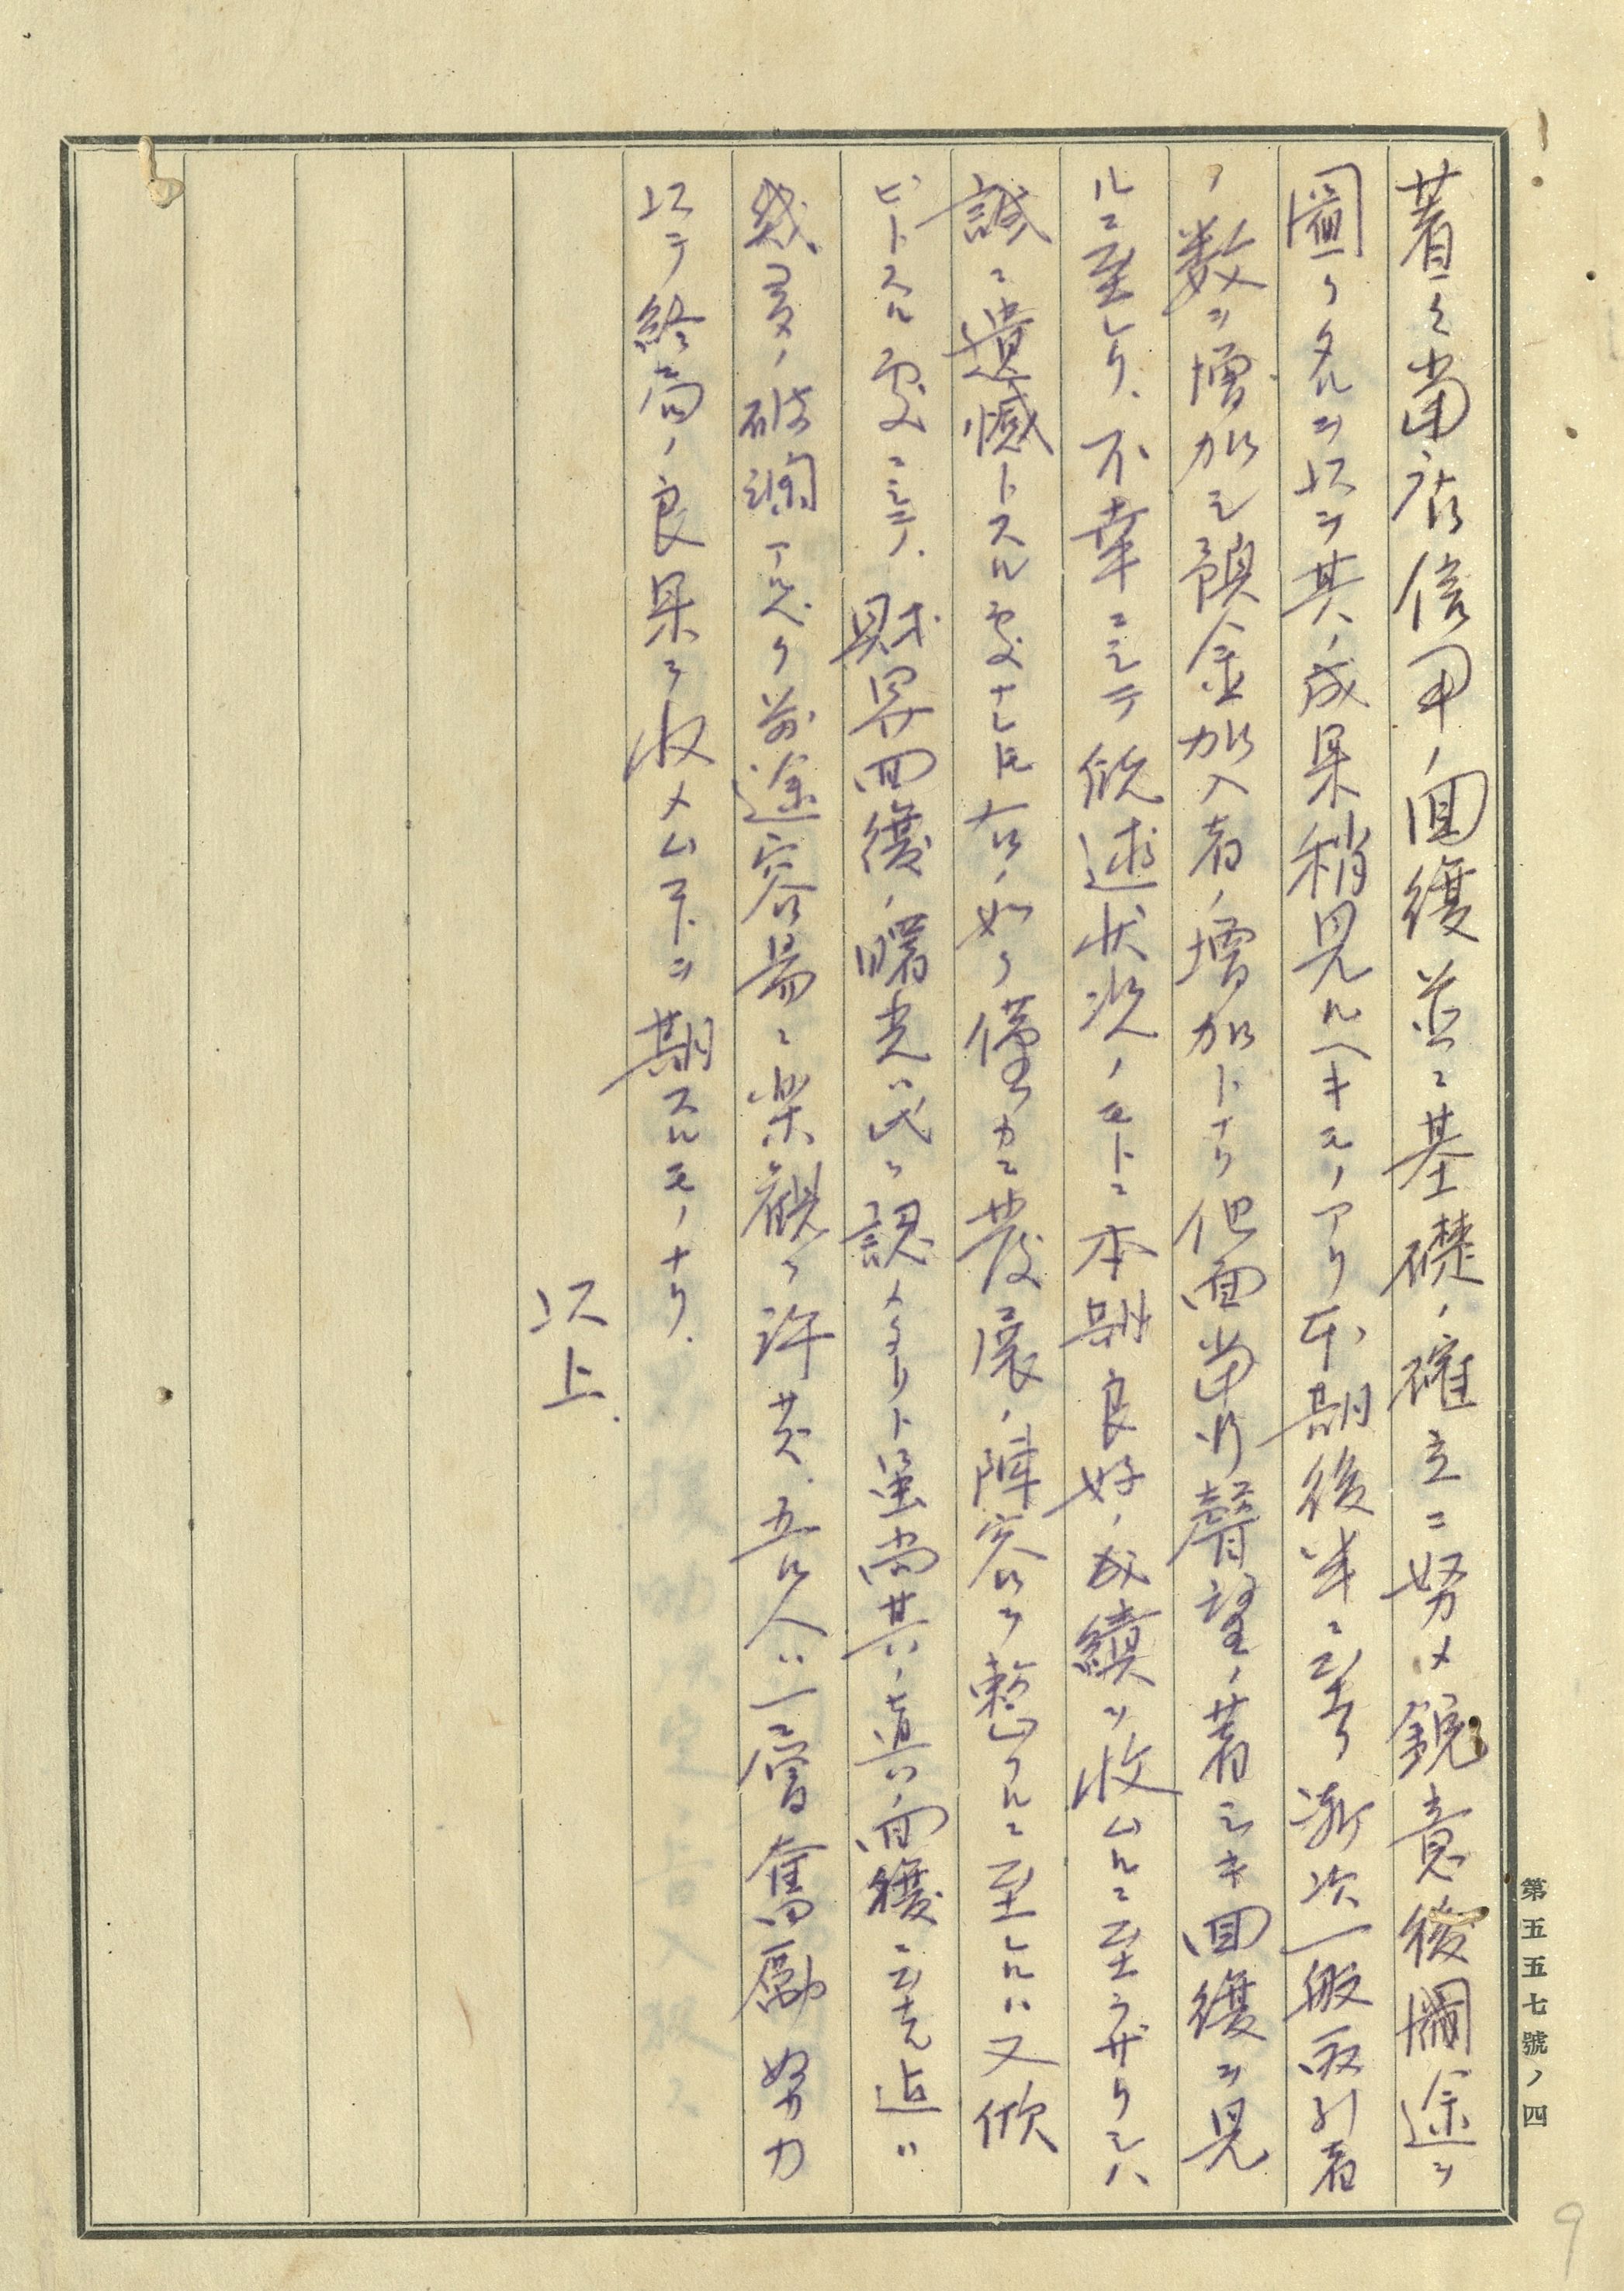 著々當店信用ノ回復並ニ基礎ノ確立ニ努メ鋭意後圖途ヲ
圖リタルヲ以テ其ノ成果稍見ルヘキモノアリ本期後半ニ至リ漸次一般取引者
ノ数ヲ増加シ預金加入者ノ増加トナリ但面當行聲望ノ著シキ回復ヲ見
ルニ至レリ、不幸ニシテ敘述状況ノモトニ本期良好ノ成績ヲ收ムルニ至ラザリシハ
誠ニ遺憾トスル處ナレ𪜈右ノ如ク僅カニ發展ノ陣容ヲ整フルニ至レルハ又欣
ビトスル處ニシテ、財界回復ノ曙光ハ氏ク認メタリト虽尚其ノ真ノ回復ニ至ル迠ハ
幾多ノ波瀾アルベク前途容易ニ楽観ヲ許サズ、吾人ハ一層奮励努力
以テ終局ノ良果ヲ収メムヿヲ期スルモノナリ、
以上、
第五五七號ノ四
9